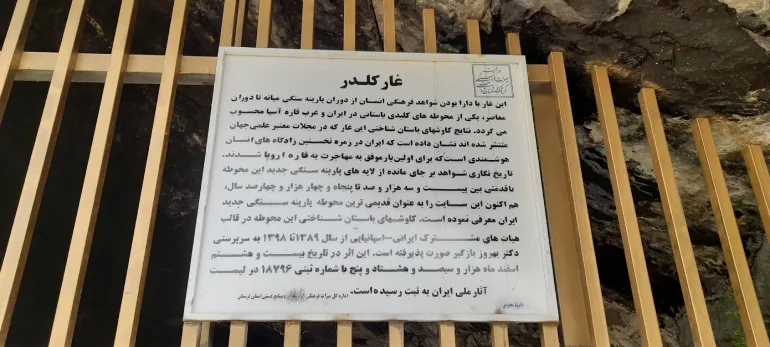 غار کلدر
این غار با دارا بودن شواهد فرهنگی انسان از دوران پارینه سنگی میانه تا دوران
معاصر، یکی از محوطه های کلیدی باستانی در ایران و غرب قاره آسیا محسوب
می گردد. نتایج کاوشهای باستان شناختی این غار که در مجلات معتبر علمی جهان
منتشر شده اند نشان داده است که ایران در زمره نخستین زادگاه های انسان
هوشمندی است که برای اولین بار موفق به مهاجرت به قاره اروپا شدند.
تاریخ نگاری شواهد بر جای مانده از لایه های پارینه سنگی جدید این محوطه
با قدمتی بین بیست و سه هزار و صد تا پنجاه و چهار هزار و چهارصد سال،
هم اکنون این سایت را به عنوان قدیمی ترین محوطه پارینه سنگی جدید
ایران معرفی نموده است. کاوشهای باستان شناختی این محوطه در قالب
هیات های مشترک ایرانی-اسپانیایی از سال ۱۳۸۹ تا ۱۳۹۸ به سرپرستی
دکتر بهروز بازگیر صورت پذیرفته است. این اثر در تاریخ بیست و هشتم
اسفند ماه هزار و سیصد و هشتاد و پنج با شماره ثبتی ۱۸۷۹۶ در لیست
آثار ملی ایران به ثبت رسیده است.
اداره کل میراث فرهنگی صنایع دستی استان لرستان